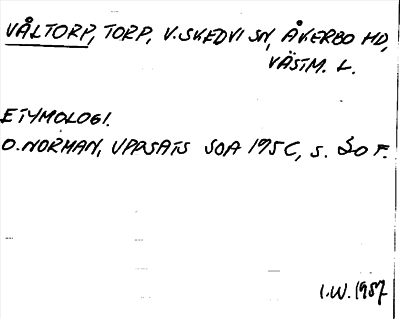 VÅLTORP, TORP, V. SKEDVI SN, ÅKERBO HD,
VÄSTM. L.
ETYMOLOGI.
O. NORMAN, UPPSATS SOA 195C, S. 30 F.
I.W. 1987